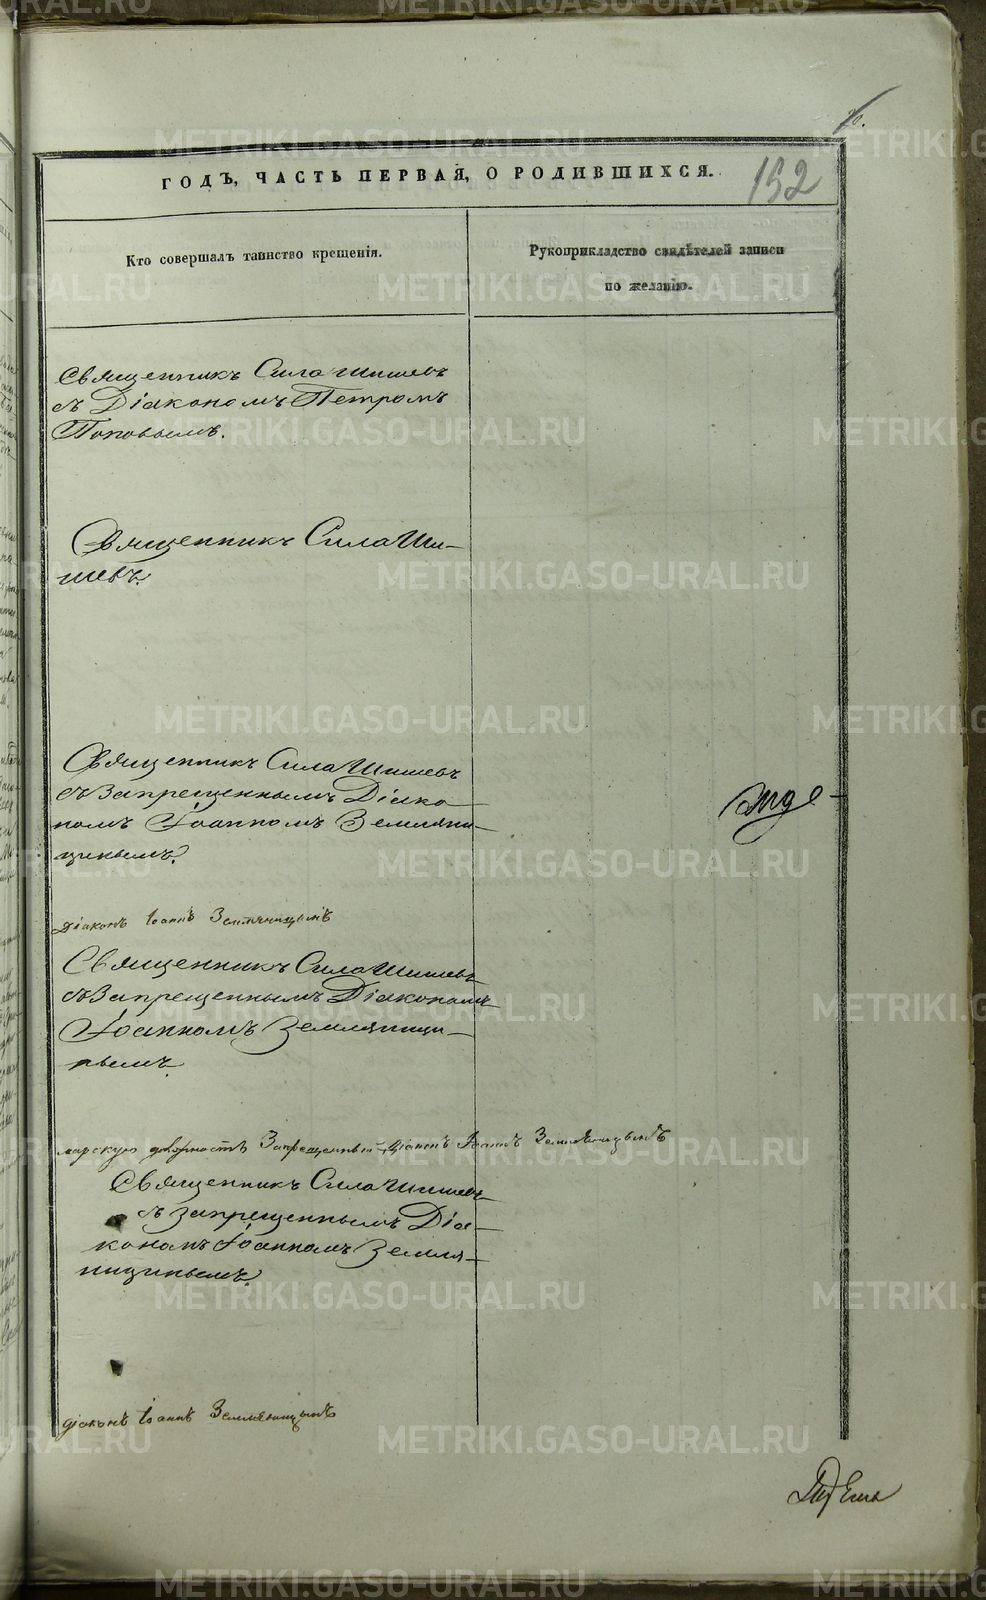 ГОДЪ, ЧАСТЬ ПЕРВАЯ, О РОДИВШИХСЯ.
152
Кто совершалъ таинство крещенія.
Рукоприкладство свидѣтелей записи
по желанію.
Священникъ Сила Шишевъ
съ Діакономъ Петромъ
Поповымъ.
Священникъ Сила Ши-
шевъ.
Священникъ Сила Шишевъ
съ Запрещеннымъ Діако-
номъ Іоанномъ Земляни-
цинымъ.
діаконъ Іоаннъ Земляницынъ
Священникъ Сила Шишевъ
съ Запрещеннымъ Діакономъ
Іоанномъ Земляници-
нымъ.
марскую должность Запрещенный діаконъ Іоаннъ Земляницынъ
Священникъ Сила Шишевъ
съ запрещеннымъ Діа-
кономъ Іоанномъ Земля-
ницинымъ.
діаконъ Іоаннъ Земляницынъ
METRIKI.GASO-URAL.RU